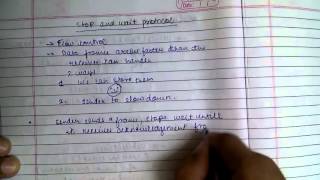 Stop and wait protocol
→ Flow control
→ Data frames arrive faster than the
receiver can handle
2 ways
1 We can store them
2. Sender to slow down.
Sender sends a frame, stops wait until
it receives acknowledgement fro